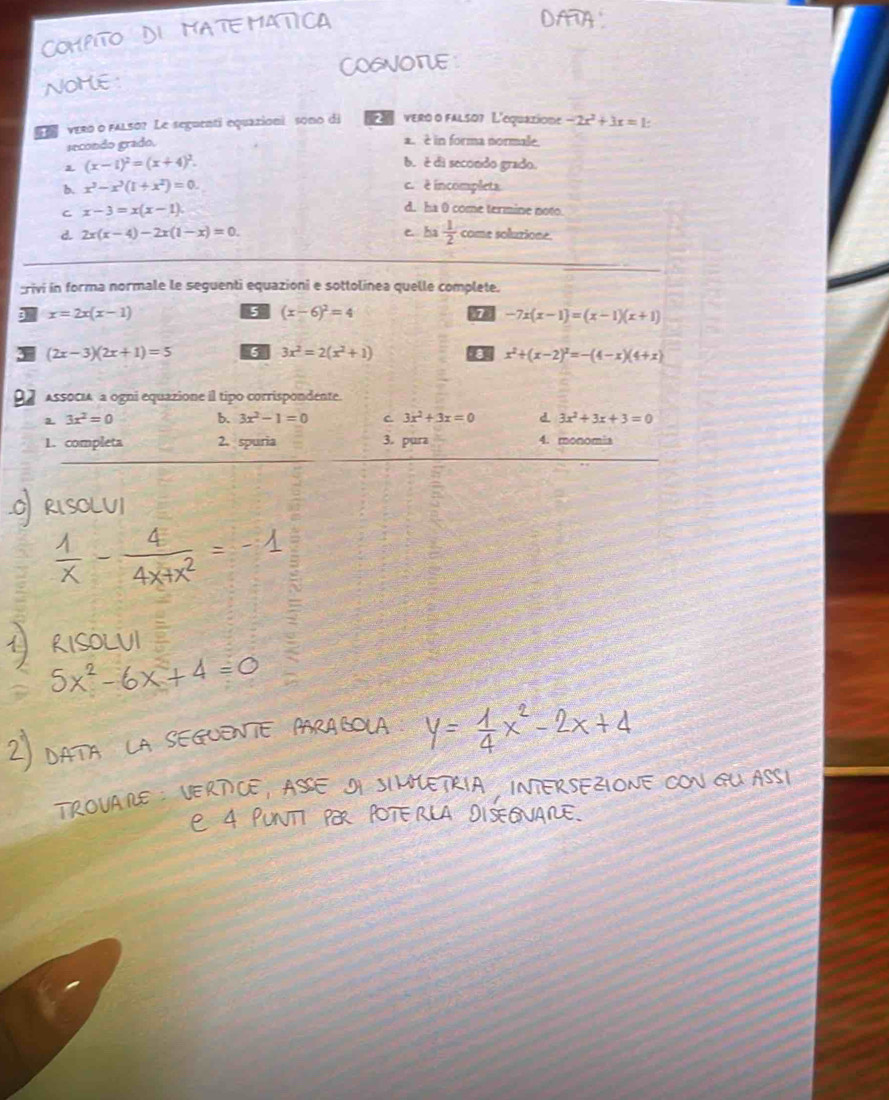 COMPITO DI MATEMATICA
DATA:
NOME:
COGNOME:
1 VERO O FALSO? Le seguenti equazioni sono di
secondo grado.
a. (x − 1)² = (x + 4)².
b. x³ − x³(1 + x²) = 0.
c. x − 3 = x(x − 1).
d. 2x(x − 4) − 2x(1 − x) = 0.
2 VERO O FALSO? L'equazione −2x² + 3x = 1:
a. è in forma normale.
b. è di secondo grado.
c. è incompleta.
d. ha 0 come termine noto.
e. ha 1/2 come soluzione.
crivi in forma normale le seguenti equazioni e sottolinea quelle complete.
x = 2x(x − 1)
5 (x − 6)² = 4
7 −7x(x − 1) = (x − 1)(x + 1)
(2x − 3)(2x + 1) = 5
6 3x² = 2(x² + 1)
8 x² + (x − 2)² = −(4 − x)(4 + x)
ASSOCIA a ogni equazione il tipo corrispondente.
a. 3x² = 0 b. 3x² − 1 = 0 c. 3x² + 3x = 0 d. 3x² + 3x + 3 = 0
1. completa 2. spuria 3. pura 4. monomia
0) RISOLVI
1/x − 4/(4x+x²) = −1
1) RISOLVI
5x² − 6x + 4 = 0
2) DATA LA SEGUENTE PARABOLA: y = 1/4 x² − 2x + 4
TROVARE: VERTICE, ASSE DI SIMMETRIA, INTERSEZIONE CON GLI ASSI
e 4 PUNTI PER POTERLA DISEGNARE.